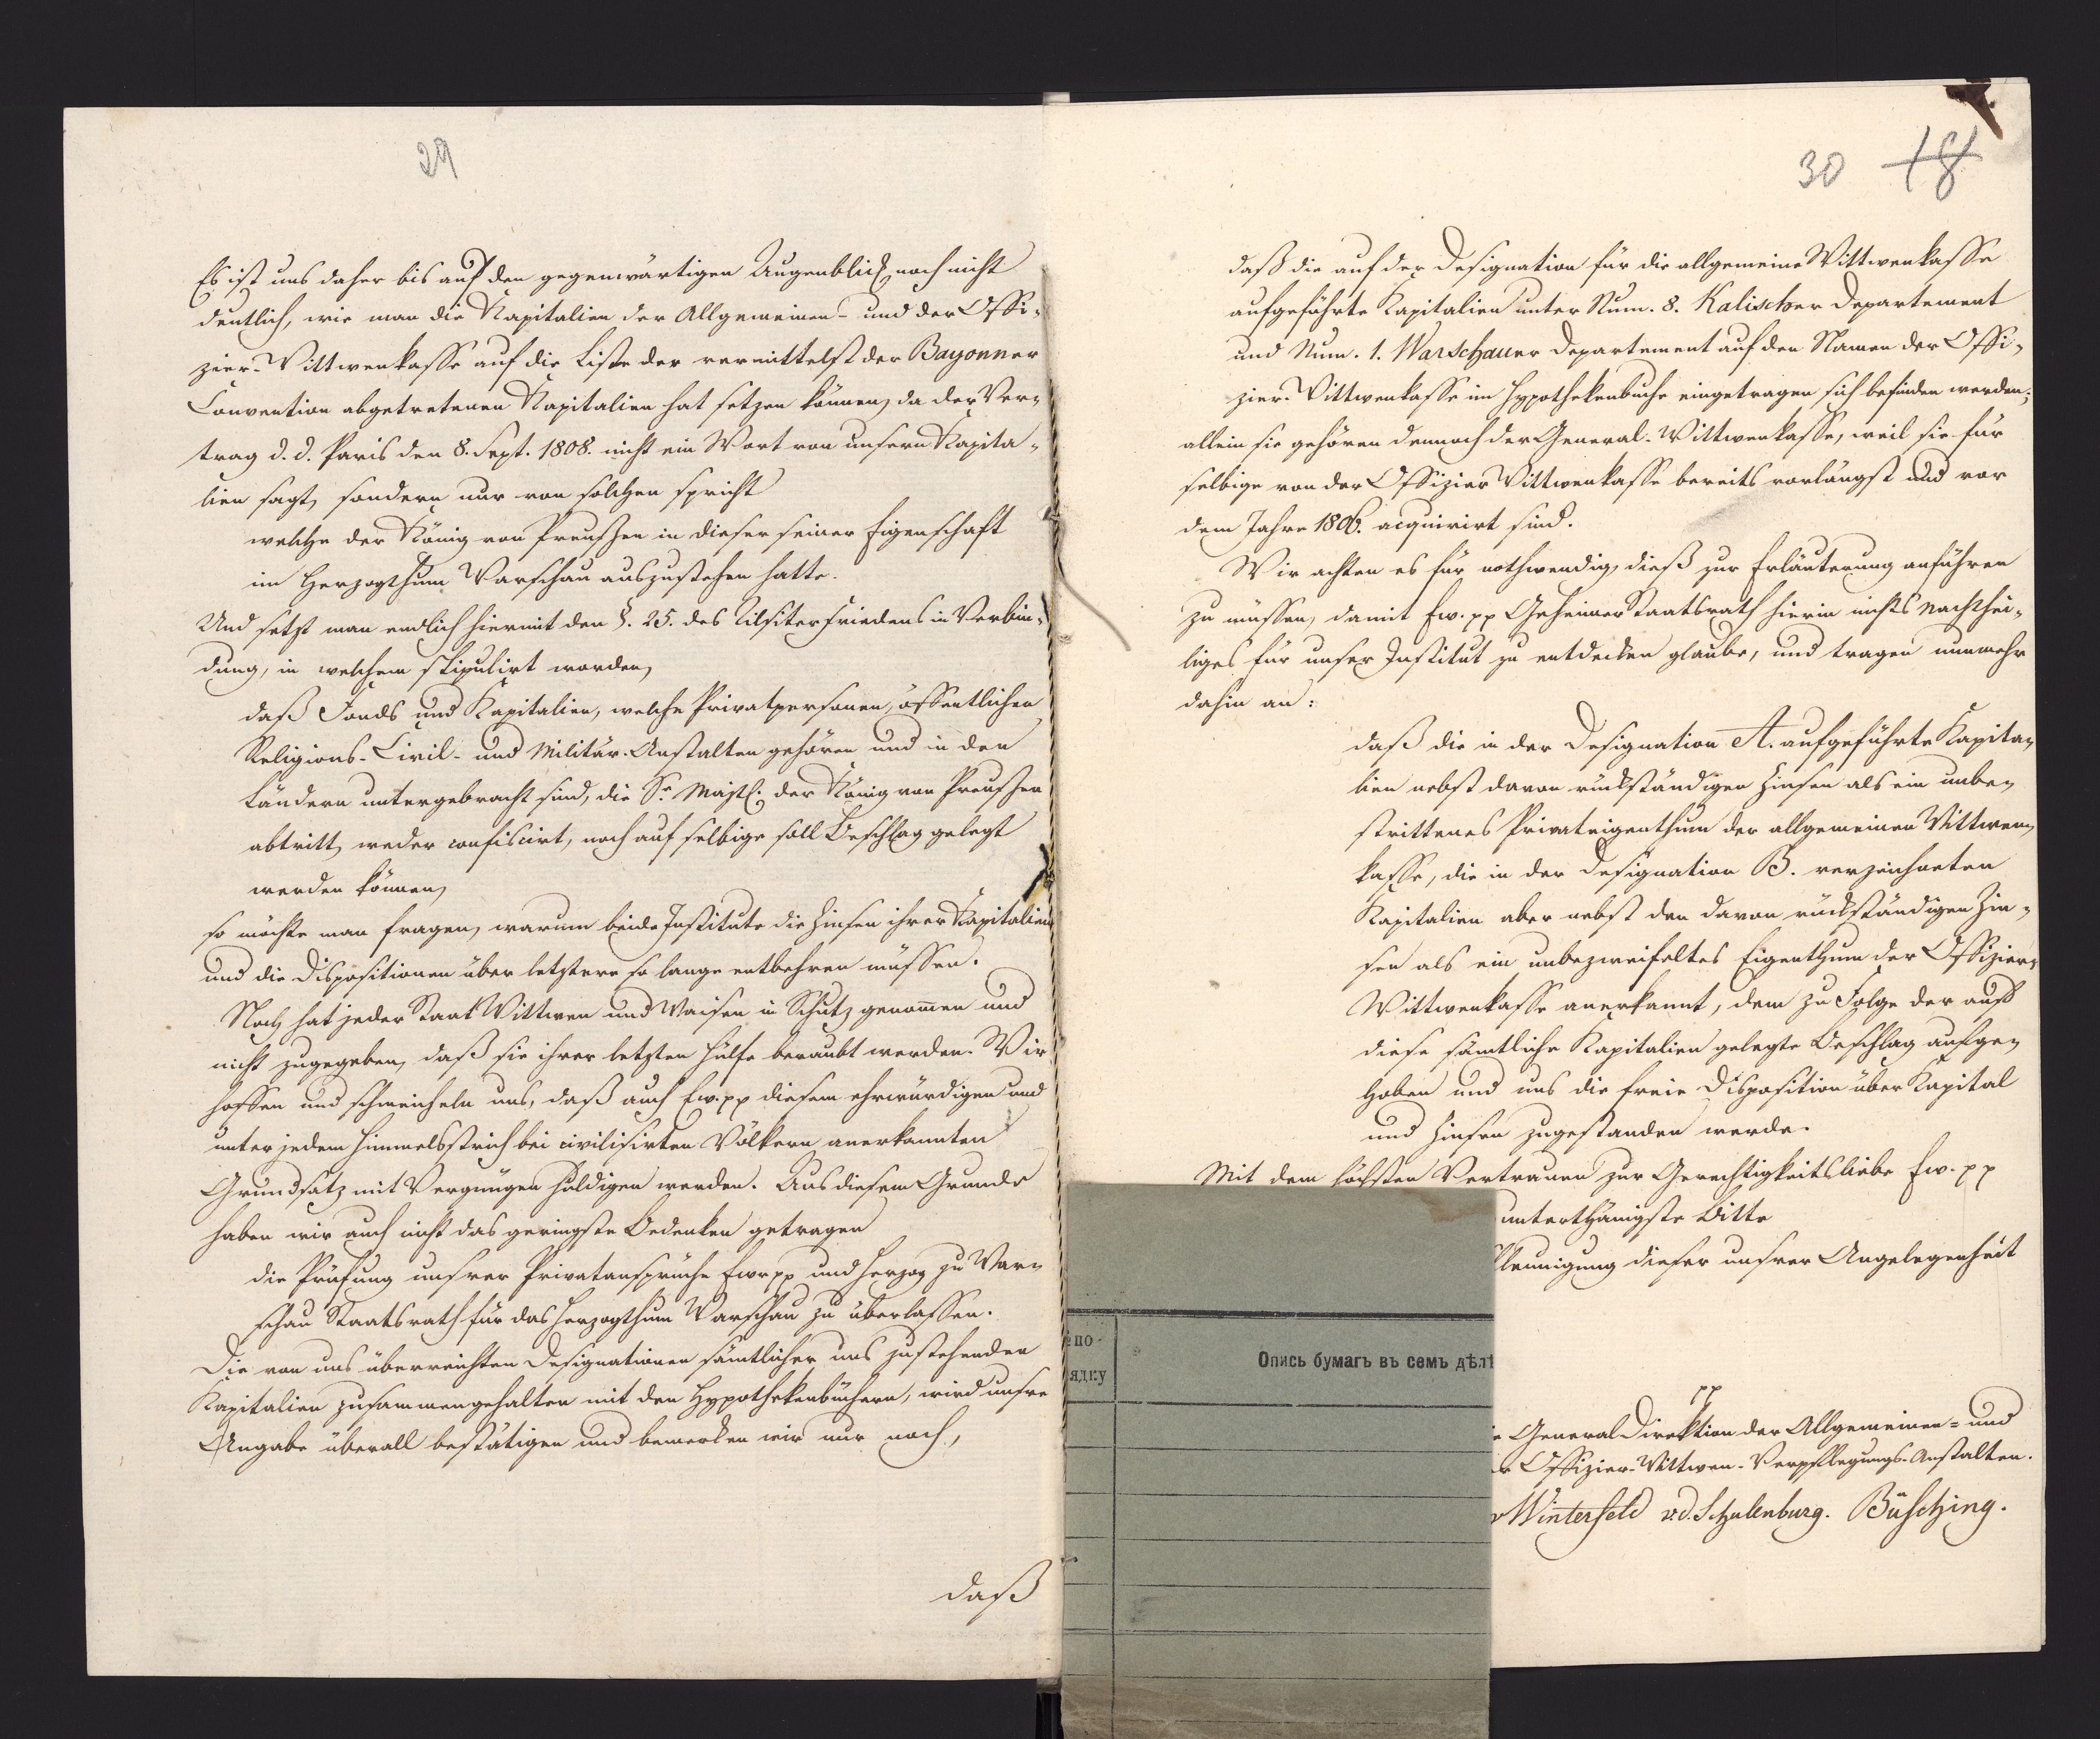 29
Es ist uns daher bis auf den gegenwärtigen Augenblick noch nicht
deutlich, wie man die Kapitalien der Allgemeinen- und der Offi-
zier-Wittwenkasse auf die Liste der vermittelst der Bayonner
Convention abgetretenen Kapitalien hat setzen können, da der Ver-
trag d. d. Paris den 8. Sept. 1808. nicht ein Wort von unsern Kapita-
lien sagt, sondern nur von solchen spricht
welche der König von Preußen in dieser seiner Eigenschaft
im Herzogthum Warschau auszustehen hatte.
Und setzt man endlich hiermit den §. 25. des Tilsiter Friedens in Verbin-
dung, in welchem stipulirt worden,
daß Fonds und Kapitalien, welche Privatpersonen, öffentlichen
Religions- Civil- und Militär-Anstalten gehören und in den
Ländern untergebracht sind, die Sr. Majst. der König von Preußen
abtritt, weder confiscirt, noch auf selbige soll Beschlag gelegt
werden können,
so möchte man fragen, warum beide Institute die Zinsen ihrer Kapitalien
und die Dispositionen über letztere so lange entbehren müssen.
Noch hat jeder Staat Wittwen und Waisen in Schutz genomen und
nicht zugegeben, daß sie ihrer letzten Hülfe beraubt werden. Wir
hoffen und schmeicheln uns, daß auch Ew. pp diesem ehrwürdigen und
unter jedem Himmelsstrich bei civilisirten Völkern anerkannten
Grundsatz mit Vergnügen huldigen werden. Aus diesem Grunde
haben wir auch nicht das geringste Bedenken getragen
die Prüfung unsrer Privatansprüche Ewr pp und Herzog zu War-
schau Staatsrath für das Herzogthum Warschau zu überlassen.
Die von uns überreichten Designationen sämtlicher uns zustehenden
Kapitalien zusammengehalten mit den Hypothekenbüchern, wird unsre
Angabe überall bestätigen und bemerken wir nur noch,
daß
30 18
daß die auf der Designation für die allgemeine Wittwenkasse
aufgeführte Kapitalien unter Num. 8. Kalischer Departement
und Num. 1. Warschauer Departement auf den Namen der Offi-
zier-Wittwenkasse im Hypothekenbuche eingetragen sich befinden werden;
allein sie gehören dennoch der General-Wittwenkasse, weil sie für
selbige von der Offizier Wittwenkasse bereits vorlängst und vor
dem Jahre 1806. acquirirt sind.
Wir achten es für nothwendig, dieß zur Erläuterung anführen
zu müssen, damit Ew. pp Geheimer Staatsrath hierin nichts nachthei-
liges für unser Institut zu entdecken glaube, und tragen nunmehr
dahin an:
daß die in der Designation A. aufgeführte Kapita-
lien nebst davon rückständigen Zinsen als ein unbe-
strittenes Privateigenthum der allgemeinen Wittwen-
kasse, die in der Designation B. verzeichneten
Kapitalien aber nebst den davon rückständigen Zin-
sen als ein unbezweifeltes Eigenthum der Offizier-
Wittwenkasse anerkannt, dem zu Folge der auf
diese sämtliche Kapitalien gelegte Beschlag aufge-
hoben und uns die freie Disposition über Kapital
und Zinsen zugestanden werde.
Mit dem höchsten Vertrauen zur Gerechtigkeitsliebe Ew. pp
unterthänigste Bitte
leunigung dieser unsrer Angelegenheit
pp
e General Direktion der Allgemeinen- und
r Offizier-Wittwen-Verpflegungs-Anstalten.
v Winterfeld v.d. Schulenburg. Büsching.
по-
ядку
Опись бумагъ въ семъ дѣлѣ